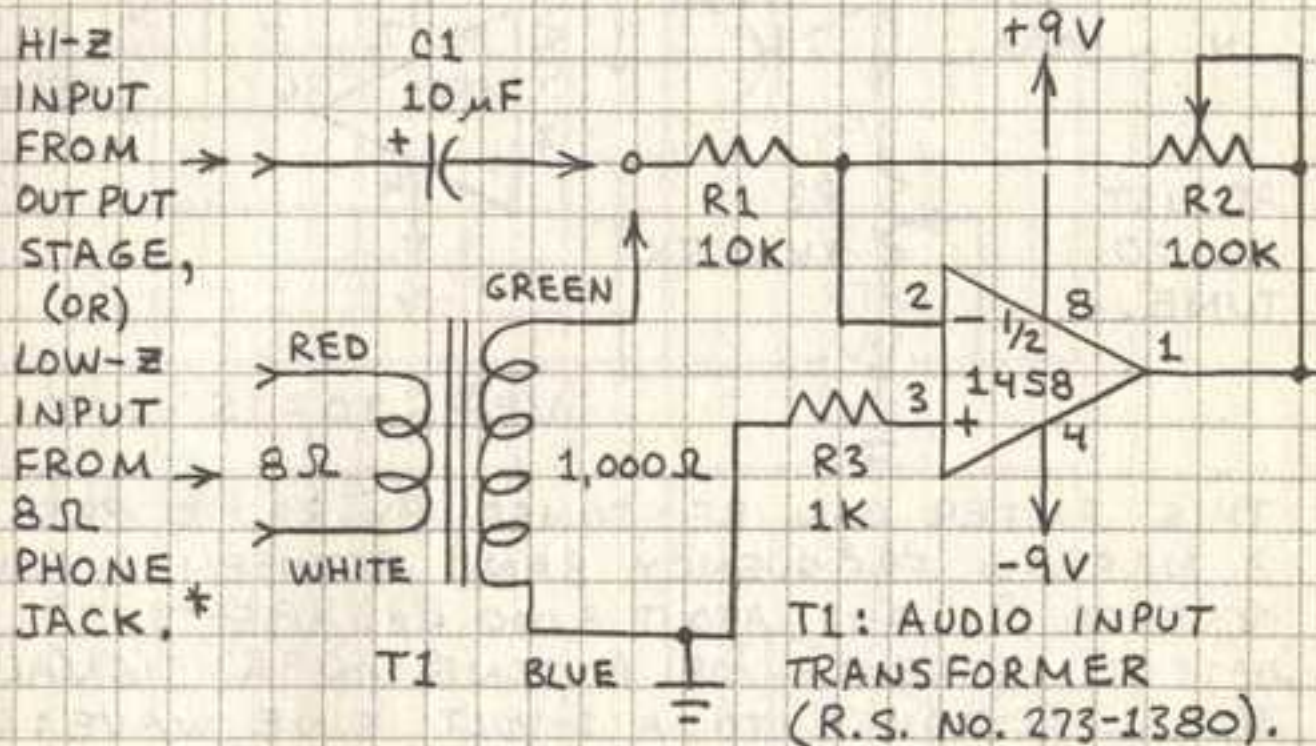 HI-Z
INPUT
FROM
OUTPUT
STAGE,
(OR)
LOW-Z
INPUT
FROM
8Ω
PHONE
JACK.*
C1
10 µF
+
+9V
R1
10K
R2
100K
GREEN
RED
8Ω
WHITE
1,000Ω
T1
BLUE
2
-
1/2
8
1458
1
3
+
4
R3
1K
-9V
T1: AUDIO INPUT
TRANSFORMER
(R.S. NO. 273-1380).